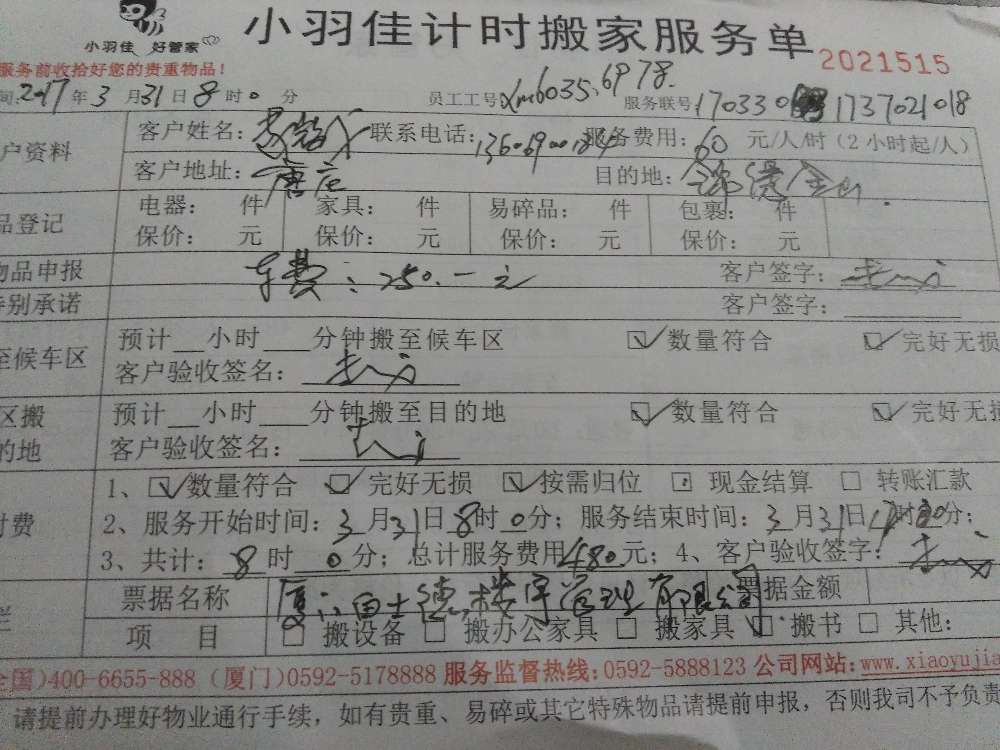 小羽佳 好管家
小羽佳计时搬家服务单
2021515
服务前收拾好您的贵重物品!
间:2017年3月31日8时0分 员工工号xm6035.6978. 服务联号170330 1737021018
户资料 客户姓名: 联系电话: 服务费用:60元/人/时(2小时起/人)
客户地址: 唐庄 目的地:
品登记 电器: 件 家具: 件 易碎品: 件 包裹: 件
保价: 元 保价: 元 保价: 元 保价: 元
物品申报 车费:250.一元 客户签字:
特别承诺 客户签字:
至候车区 预计__小时___分钟搬至候车区 数量符合 完好无损
客户验收签名:
区搬 预计__小时___分钟搬至目的地 数量符合 完好无损
的地 客户验收签名:
1、数量符合 完好无损 按需归位 现金结算 转账汇款
付费 2、服务开始时间:3月31日8时0分;服务结束时间:3月31日 时 分;
3、共计:8时0分;总计服务费用480元;4、客户验收签字:
栏 票据名称 厦门 士德楼宇管理有限公司 票据金额
项 目 搬设备 搬办公家具 搬家具 搬书 其他:
全国)400-6655-888 (厦门)0592-5178888 服务监督热线:0592-5888123 公司网站:www.xiaoyujia
请提前办理好物业通行手续,如有贵重、易碎或其它特殊物品请提前申报,否则我司不予负责